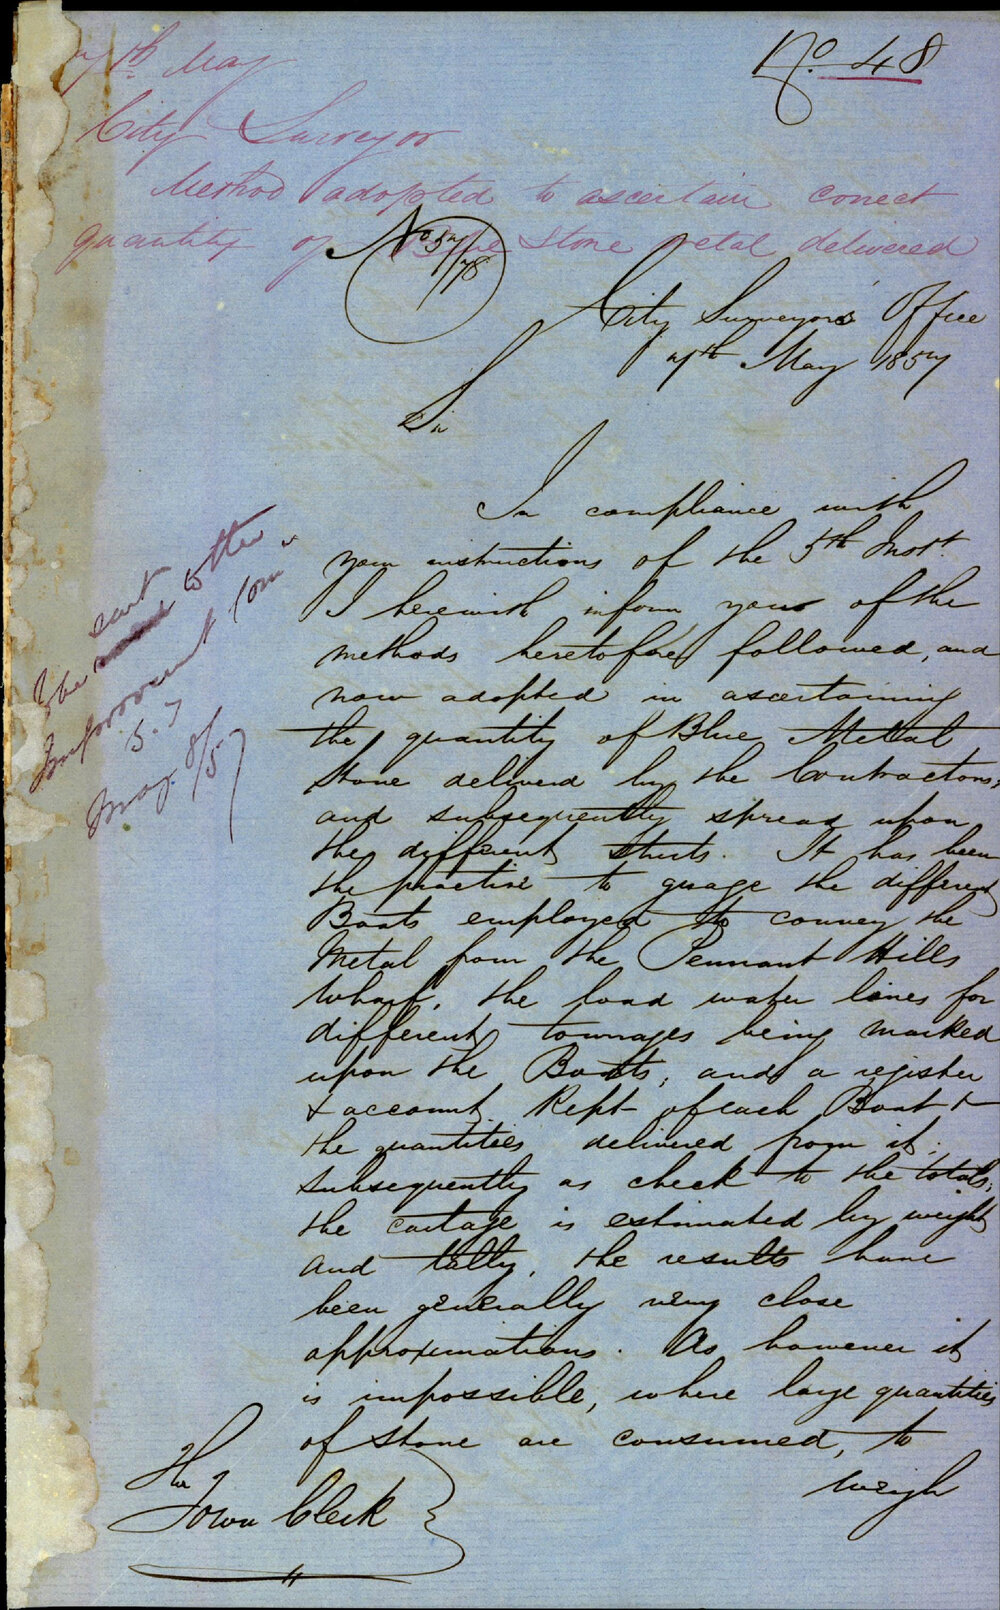 No. 48
7th May
City Surveyor
Method adopted to ascertain correct
quantity of Blue Stone Metal delivered
No 57/78
City Surveyors Office
7th May 1857
Sir
In compliance with
your instructions of the 5th Inst.
I herewith inform you of the
methods heretofore followed, and
now adopted in ascertaining
the quantity of Blue Mettal
Stone delivered by the Contractors,
and subsequently spread upon
the different Streets. It has been
the practise to guage the different
Boats employed to convey the
Metal from the Pennant Hills
Wharf, the load water lines for
different tonnages being marked
upon the Boats, and a register
& account Kept of each Boat &
the quantities delivered from it;
Subsequently as check to the totals,
the cartage is estimated by weight
and tally, the results have
been generally very close
approximations. As however it
is impossible, where large quantities
of Stone are consumed, to
weigh
The
Town Clerk
sent
to the
Improvement Com
5.7
May 8/57